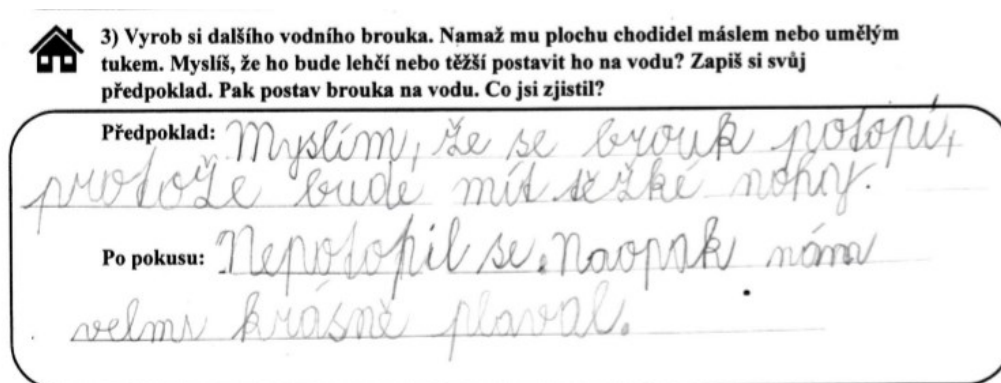 3) Vyrob si dalšího vodního brouka. Namaž mu plochu chodidel máslem nebo umělým
tukem. Myslíš, že ho bude lehčí nebo těžší postavit ho na vodu? Zapiš si svůj
předpoklad. Pak postav brouka na vodu. Co jsi zjistil?
Předpoklad: Myslím, že se brouk potopí,
protože bude mít těžké nohy.
Po pokusu: Nepotopil se. Naopak nám
velmi krásně plaval.